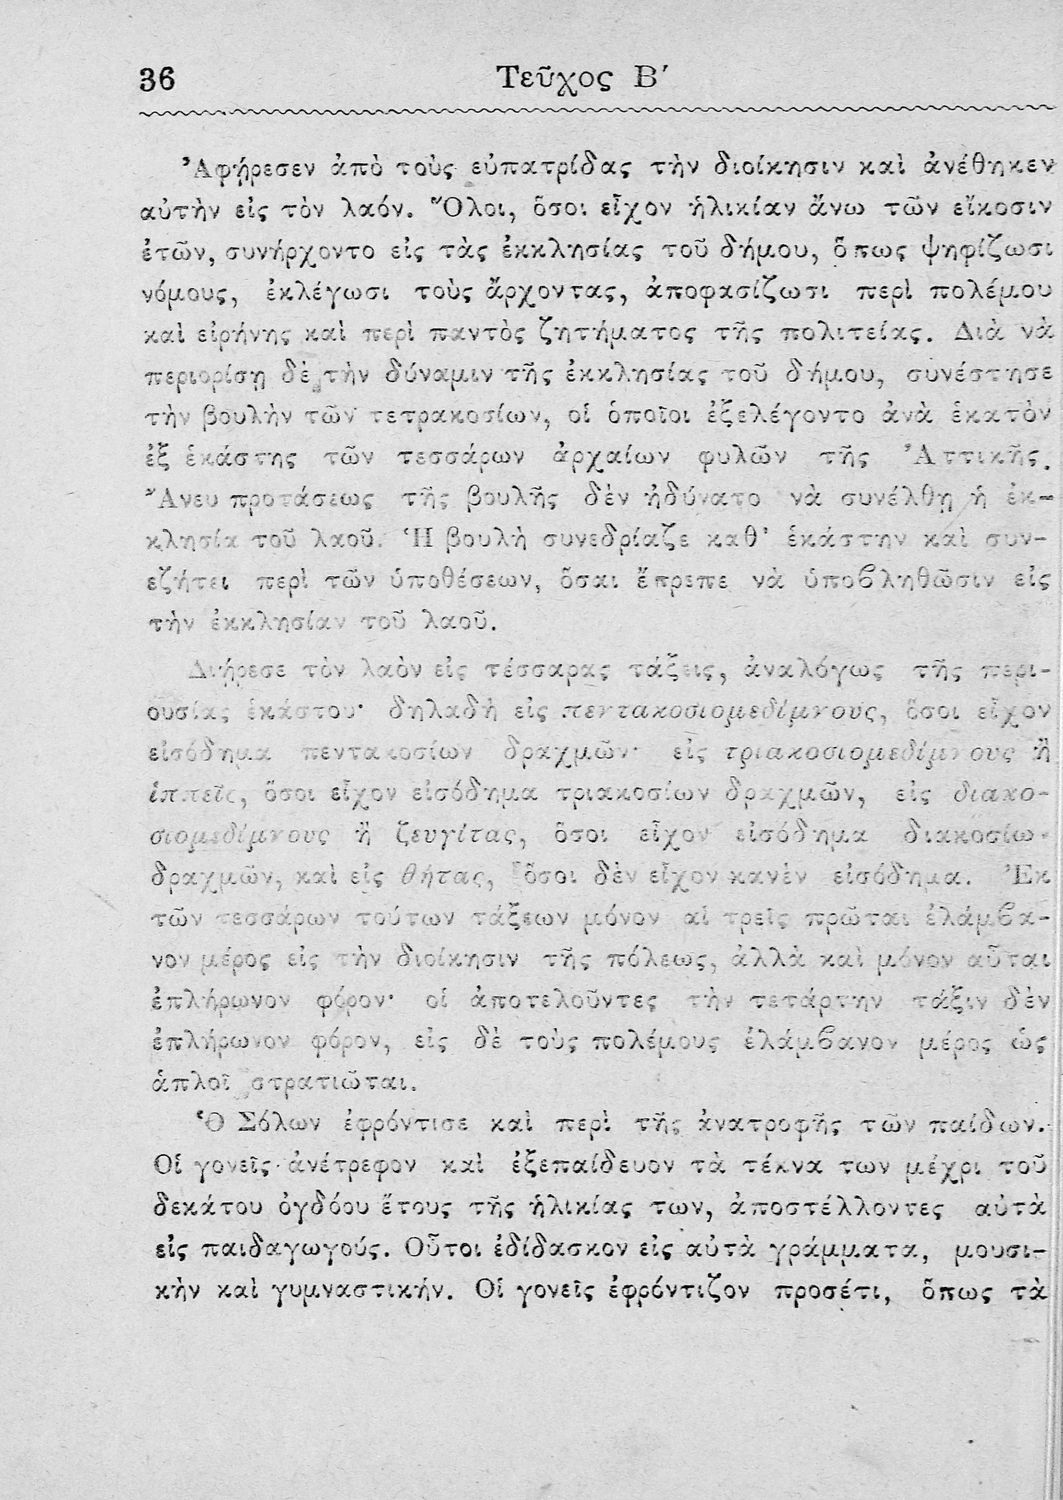 36 Τεῦχος Β΄
Ἀφῄρεσεν ἀπὸ τοὺς εὐπατρίδας τὴν διοίκησιν καὶ ἀνέθηκεν
αὐτὴν εἰς τὸν λαόν. Ὅλοι, ὅσοι εἶχον ἡλικίαν ἄνω τῶν εἴκοσιν
ἐτῶν, συνήρχοντο εἰς τὰς ἐκκλησίας τοῦ δήμου, ὅπως ψηφίζωσι
νόμους, ἐκλέγωσι τοὺς ἄρχοντας, ἀποφασίζωσι περὶ πολέμου
καὶ εἰρήνης καὶ περὶ παντὸς ζητήματος τῆς πολιτείας. Διὰ νὰ
περιορίσῃ δὲ τὴν δύναμιν τῆς ἐκκλησίας τοῦ δήμου, συνέστησε
τὴν βουλὴν τῶν τετρακοσίων, οἱ ὁποῖοι ἐξελέγοντο ἀνὰ ἑκατὸν
ἐξ ἑκάστης τῶν τεσσάρων ἀρχαίων φυλῶν τῆς Ἀττικῆς.
Ἄνευ προτάσεως τῆς βουλῆς δὲν ἠδύνατο νὰ συνέλθῃ ἡ ἐκ-
κλησία τοῦ λαοῦ. Ἡ βουλὴ συνεδρίαζε καθ' ἑκάστην καὶ συν-
εζήτει περὶ τῶν ὑποθέσεων, ὅσαι ἔπρεπε νὰ ὑποϐληθῶσιν εἰς
τὴν ἐκκλησίαν τοῦ λαοῦ.
Διῄρεσε τὸν λαὸν εἰς τέσσαρας τάξεις, ἀναλόγως τῆς περι-
ουσίας ἑκάστου· δηλαδὴ εἰς πεντακοσιομεδίμνους, ὅσοι εἶχον
εἰσόδημα πεντακοσίων δραχμῶν· εἰς τριακοσιομεδίμνους ἢ
ἱππεῖς, ὅσοι εἶχον εἰσόδημα τριακοσίων δραχμῶν, εἰς διακο-
σιομεδίμνους ἢ ζευγίτας, ὅσοι εἶχον εἰσόδημα διακοσίω
δραχμῶν, καὶ εἰς θῆτας, ὅσοι δὲν εἶχον κανὲν εἰσόδημα. Ἐκ
τῶν τεσσάρων τούτων τάξεων μόνον αἱ τρεῖς πρῶται ἐλάμϐα-
νον μέρος εἰς τὴν διοίκησιν τῆς πόλεως, ἀλλὰ καὶ μόνον αὗται
ἐπλήρωνον φόρον· οἱ ἀποτελοῦντες τὴν τετάρτην τάξιν δὲν
ἐπλήρωνον φόρον, εἰς δὲ τοὺς πολέμους ἐλάμϐανον μέρος ὡς
ἁπλοῖ στρατιῶται.
Ὁ Σόλων ἐφρόντισε καὶ περὶ τῆς ἀνατροφῆς τῶν παίδων.
Οἱ γονεῖς ἀνέτρεφον καὶ ἐξεπαίδευον τὰ τέκνα των μέχρι τοῦ
δεκάτου ὀγδόου ἔτους τῆς ἡλικίας των, ἀποστέλλοντες αὐτὰ
εἰς παιδαγωγούς. Οὗτοι ἐδίδασκον εἰς αὐτὰ γράμματα, μουσι-
κὴν καὶ γυμναστικήν. Οἱ γονεῖς ἐφρόντιζον προσέτι, ὅπως τὰ